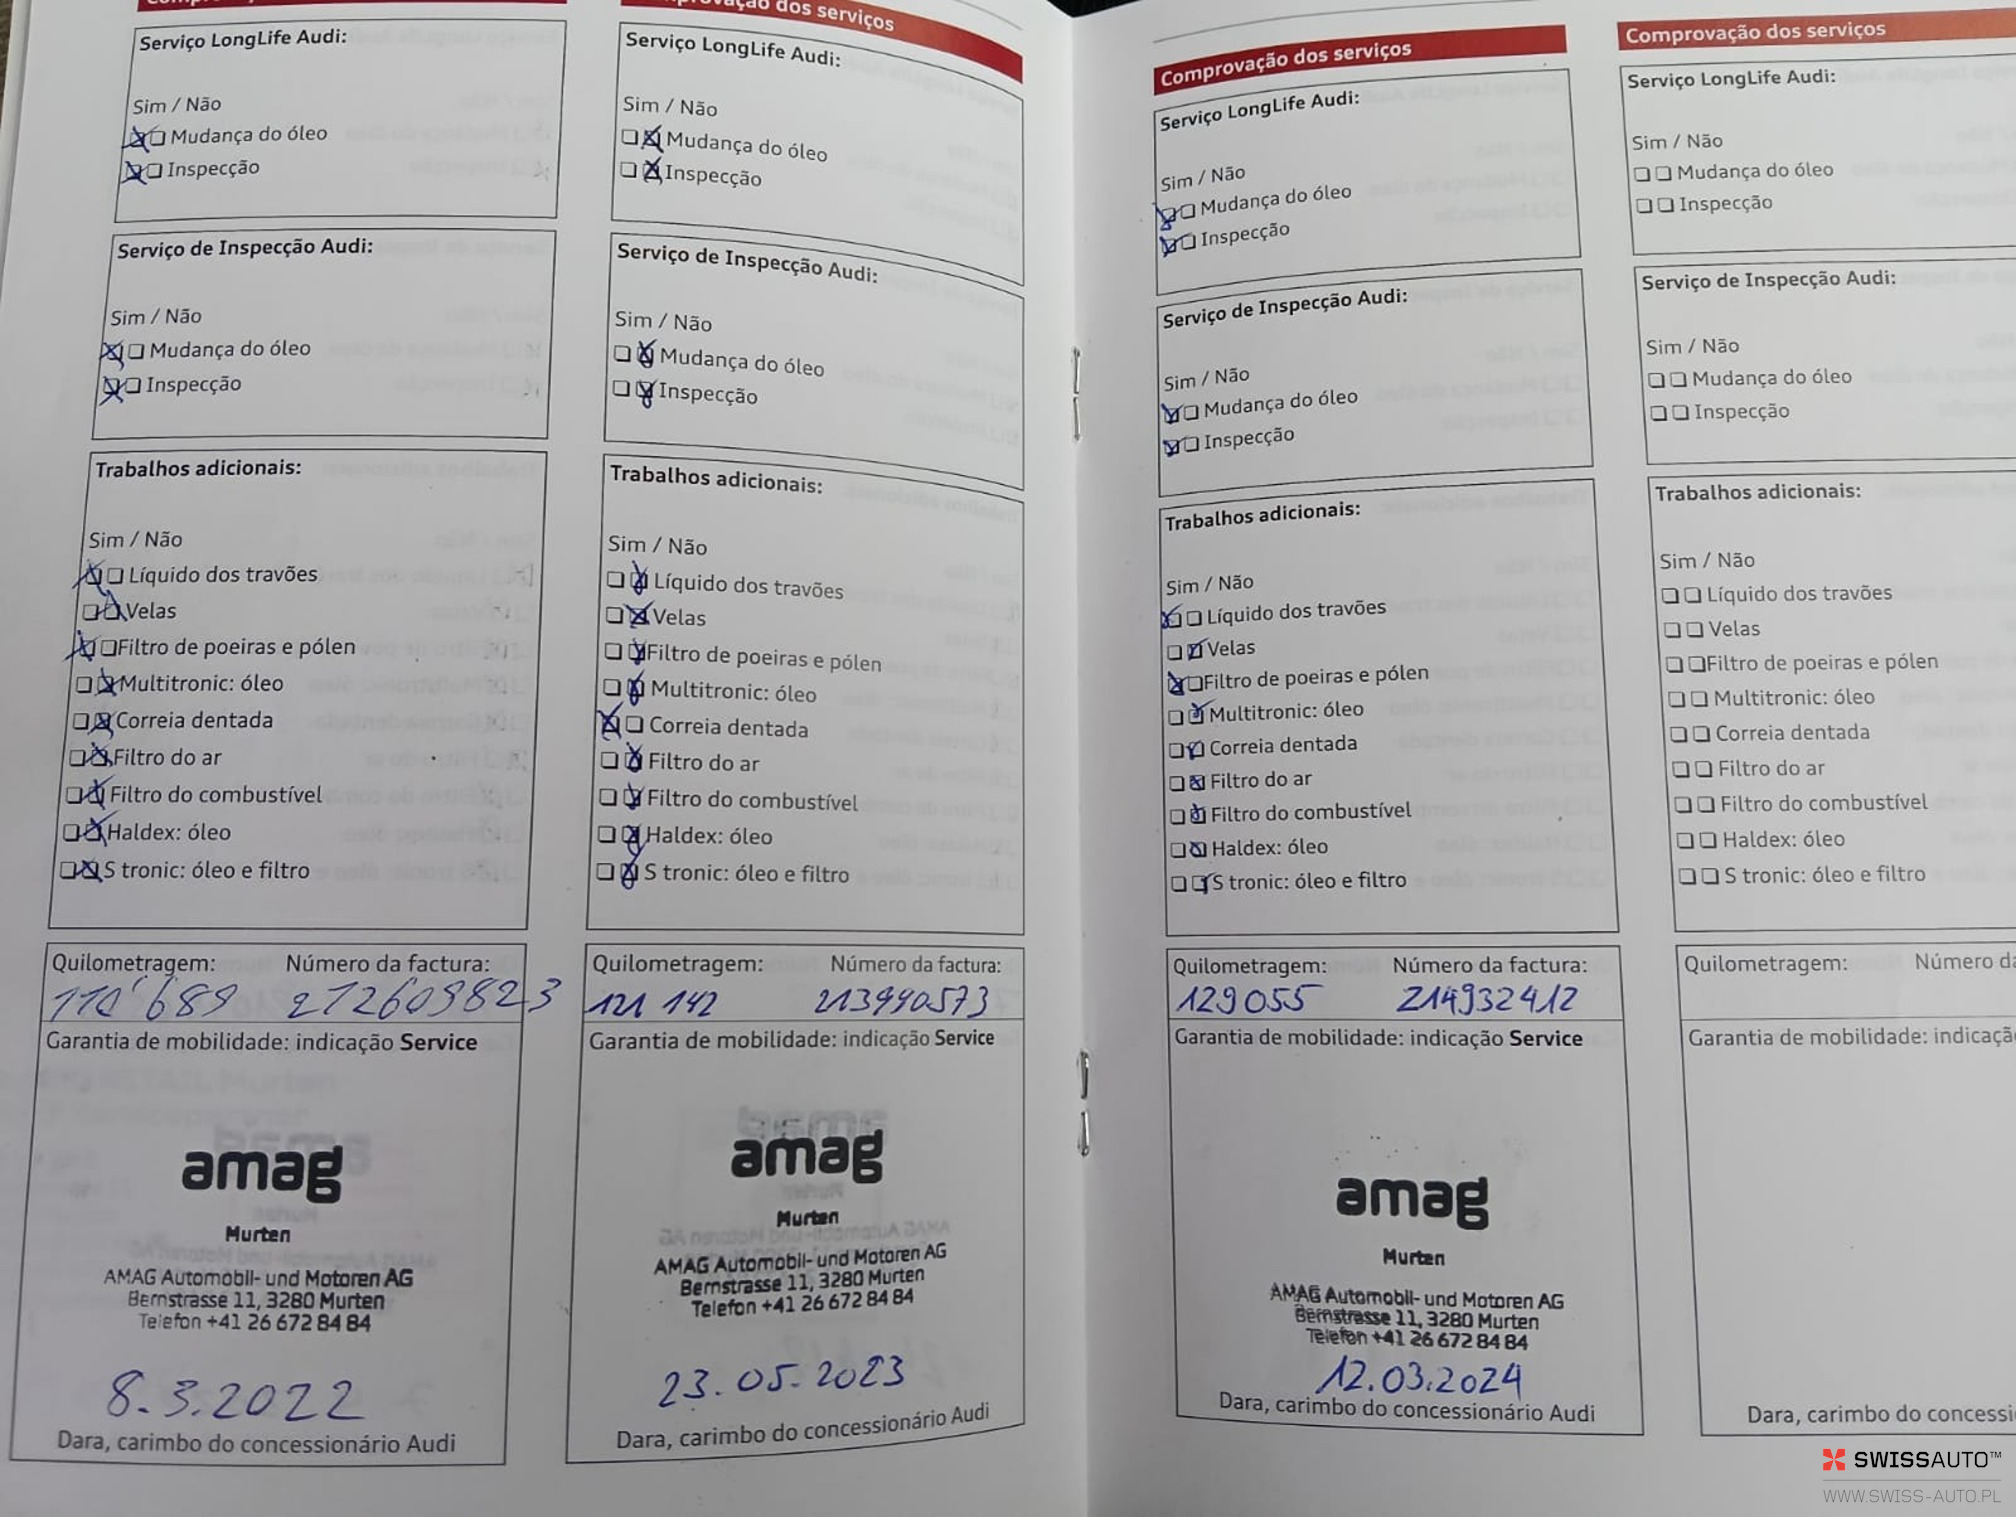 Serviço LongLife Audi:
Sim / Não
Mudança do óleo
Inspecção
Serviço de Inspecção Audi:
Sim / Não
Mudança do óleo
Inspecção
Trabalhos adicionais:
Sim / Não
Líquido dos travões
Velas
Filtro de poeiras e pólen
Multitronic: óleo
Correia dentada
Filtro do ar
Filtro do combustível
Haldex: óleo
S tronic: óleo e filtro
Quilometragem: Número da factura:
110'689 212609823
Garantia de mobilidade: indicação Service
amag
Murten
AMAG Automobil- und Motoren AG
Bernstrasse 11, 3280 Murten
Telefon +41 26 672 84 84
8.3.2022
Dara, carimbo do concessionário Audi
dos serviços
Serviço LongLife Audi:
Sim / Não
Mudança do óleo
Inspecção
Serviço de Inspecção Audi:
Sim / Não
Mudança do óleo
Inspecção
Trabalhos adicionais:
Sim / Não
Líquido dos travões
Velas
Filtro de poeiras e pólen
Multitronic: óleo
Correia dentada
Filtro do ar
Filtro do combustível
Haldex: óleo
S tronic: óleo e filtro
Quilometragem: Número da factura:
121 142 213990573
Garantia de mobilidade: indicação Service
amag
Murten
AMAG Automobil- und Motoren AG
Bernstrasse 11, 3280 Murten
Telefon +41 26 672 84 84
23.05.2023
Dara, carimbo do concessionário Audi
Comprovação dos serviços
Serviço LongLife Audi:
Sim / Não
Mudança do óleo
Inspecção
Serviço de Inspecção Audi:
Sim / Não
Mudança do óleo
Inspecção
Trabalhos adicionais:
Sim / Não
Líquido dos travões
Velas
Filtro de poeiras e pólen
Multitronic: óleo
Correia dentada
Filtro do ar
Filtro do combustível
Haldex: óleo
S tronic: óleo e filtro
Quilometragem: Número da factura:
129055 214932412
Garantia de mobilidade: indicação Service
amag
Murten
AMAG Automobil- und Motoren AG
Bernstrasse 11, 3280 Murten
Telefon +41 26 672 84 84
12.03.2024
Dara, carimbo do concessionário Audi
Comprovação dos serviços
Serviço LongLife Audi:
Sim / Não
Mudança do óleo
Inspecção
Serviço de Inspecção Audi:
Sim / Não
Mudança do óleo
Inspecção
Trabalhos adicionais:
Sim / Não
Líquido dos travões
Velas
Filtro de poeiras e pólen
Multitronic: óleo
Correia dentada
Filtro do ar
Filtro do combustível
Haldex: óleo
S tronic: óleo e filtro
Quilometragem: Número da
Garantia de mobilidade: indicaçã
Dara, carimbo do concessi
SWISSAUTO™
WWW.SWISS-AUTO.PL